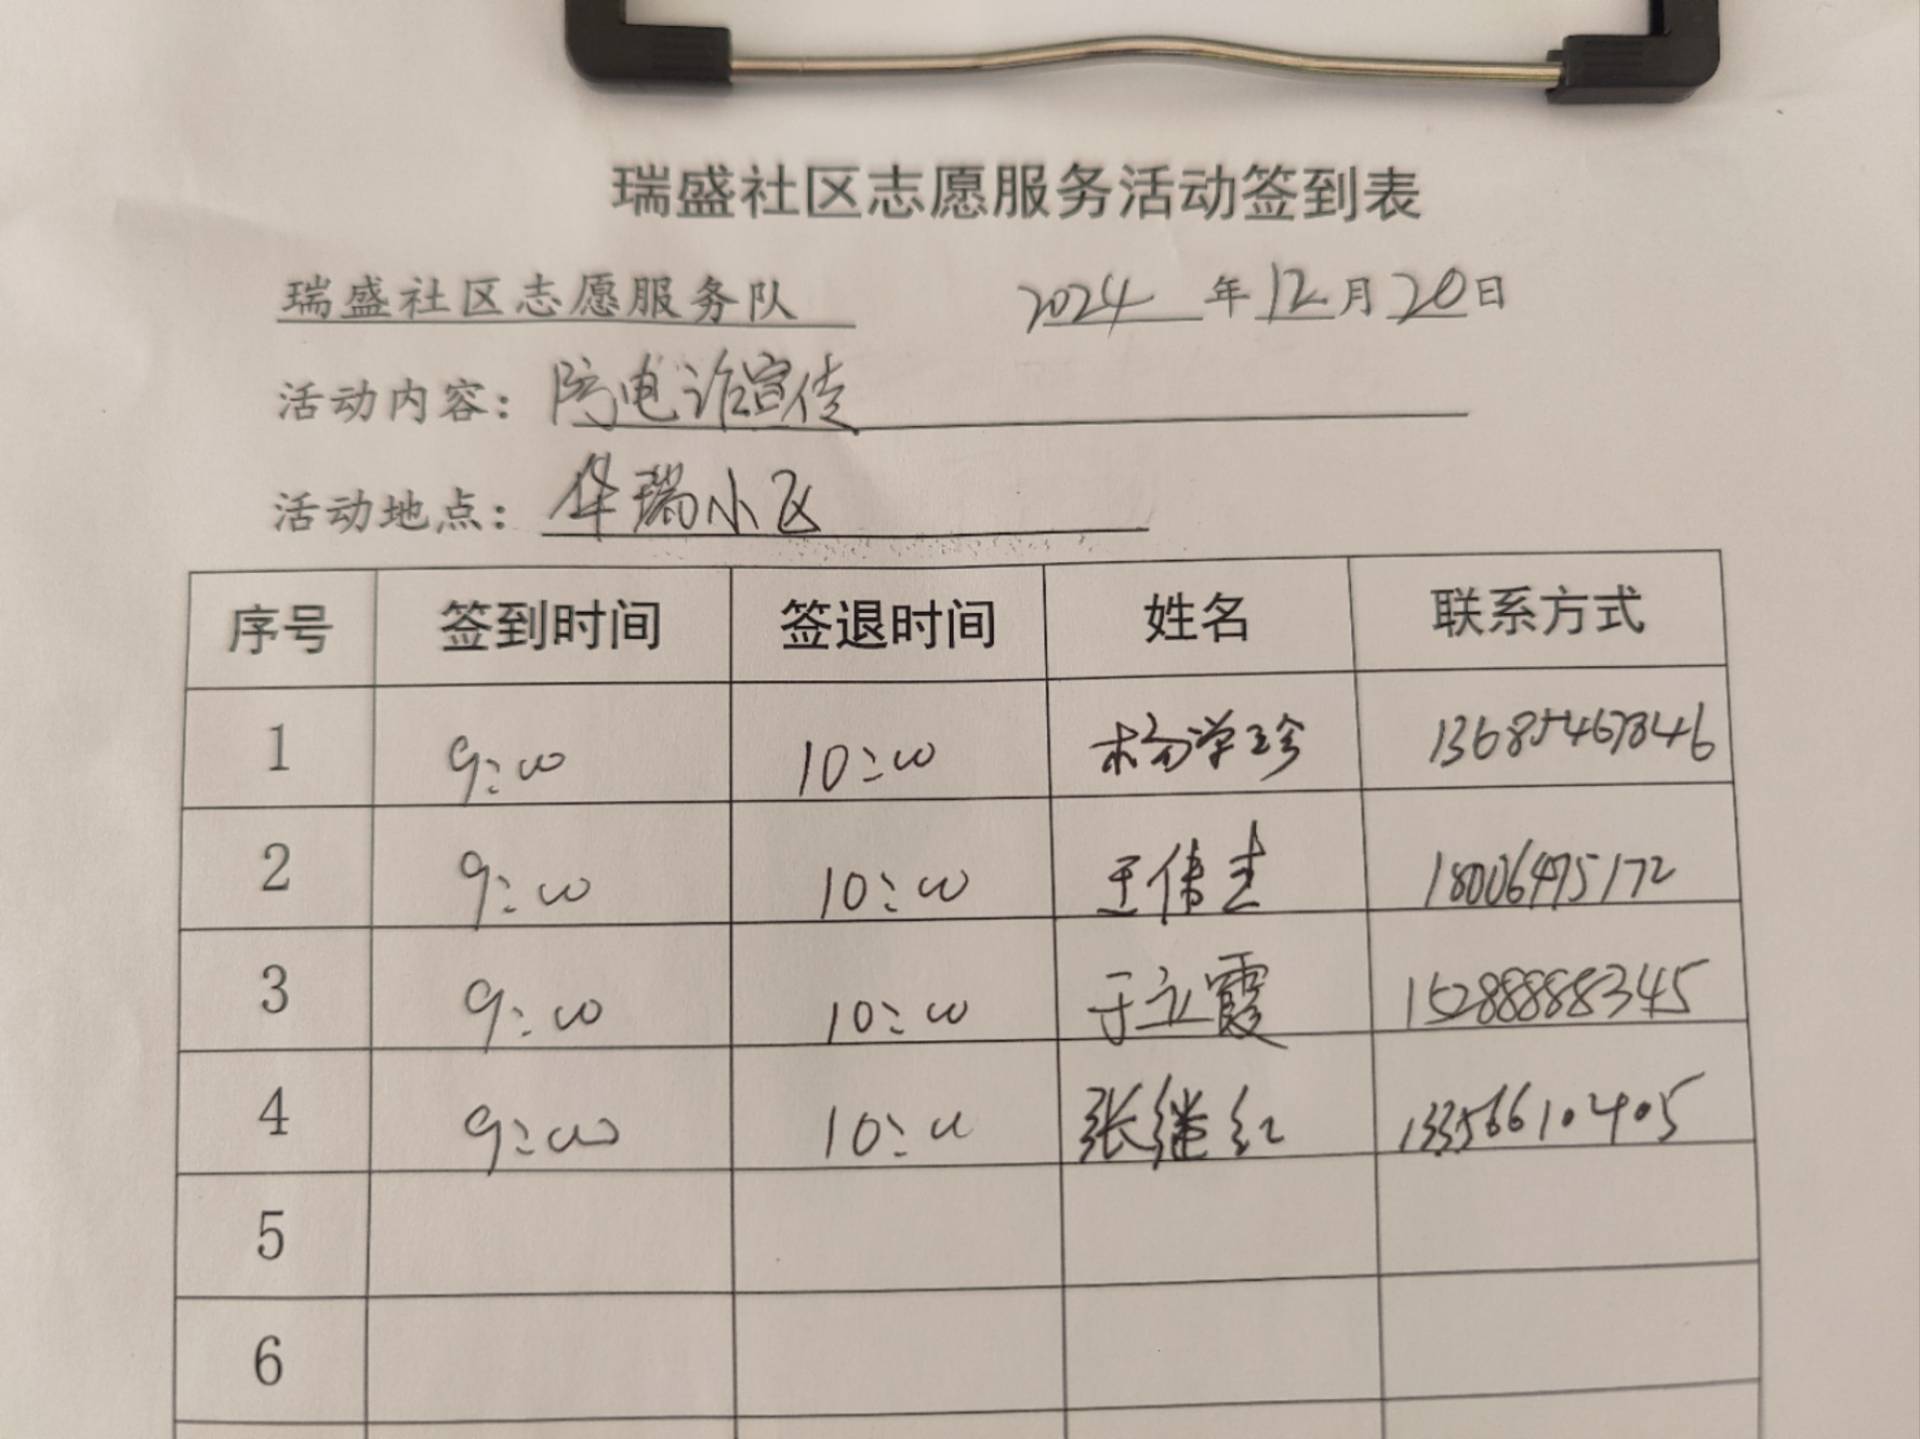 瑞盛社区志愿服务活动签到表
瑞盛社区志愿服务队 2024年12月20日
活动内容：防电诈宣传
活动地点：华瑞小区
序号 签到时间 签退时间 姓名 联系方式
1 9:00 10:00 杨学珍 13685467846
2 9:00 10:00 王伟志 18006475172
3 9:00 10:00 于立霞 15288888345
4 9:00 10:00 张继红 13356610405
5
6